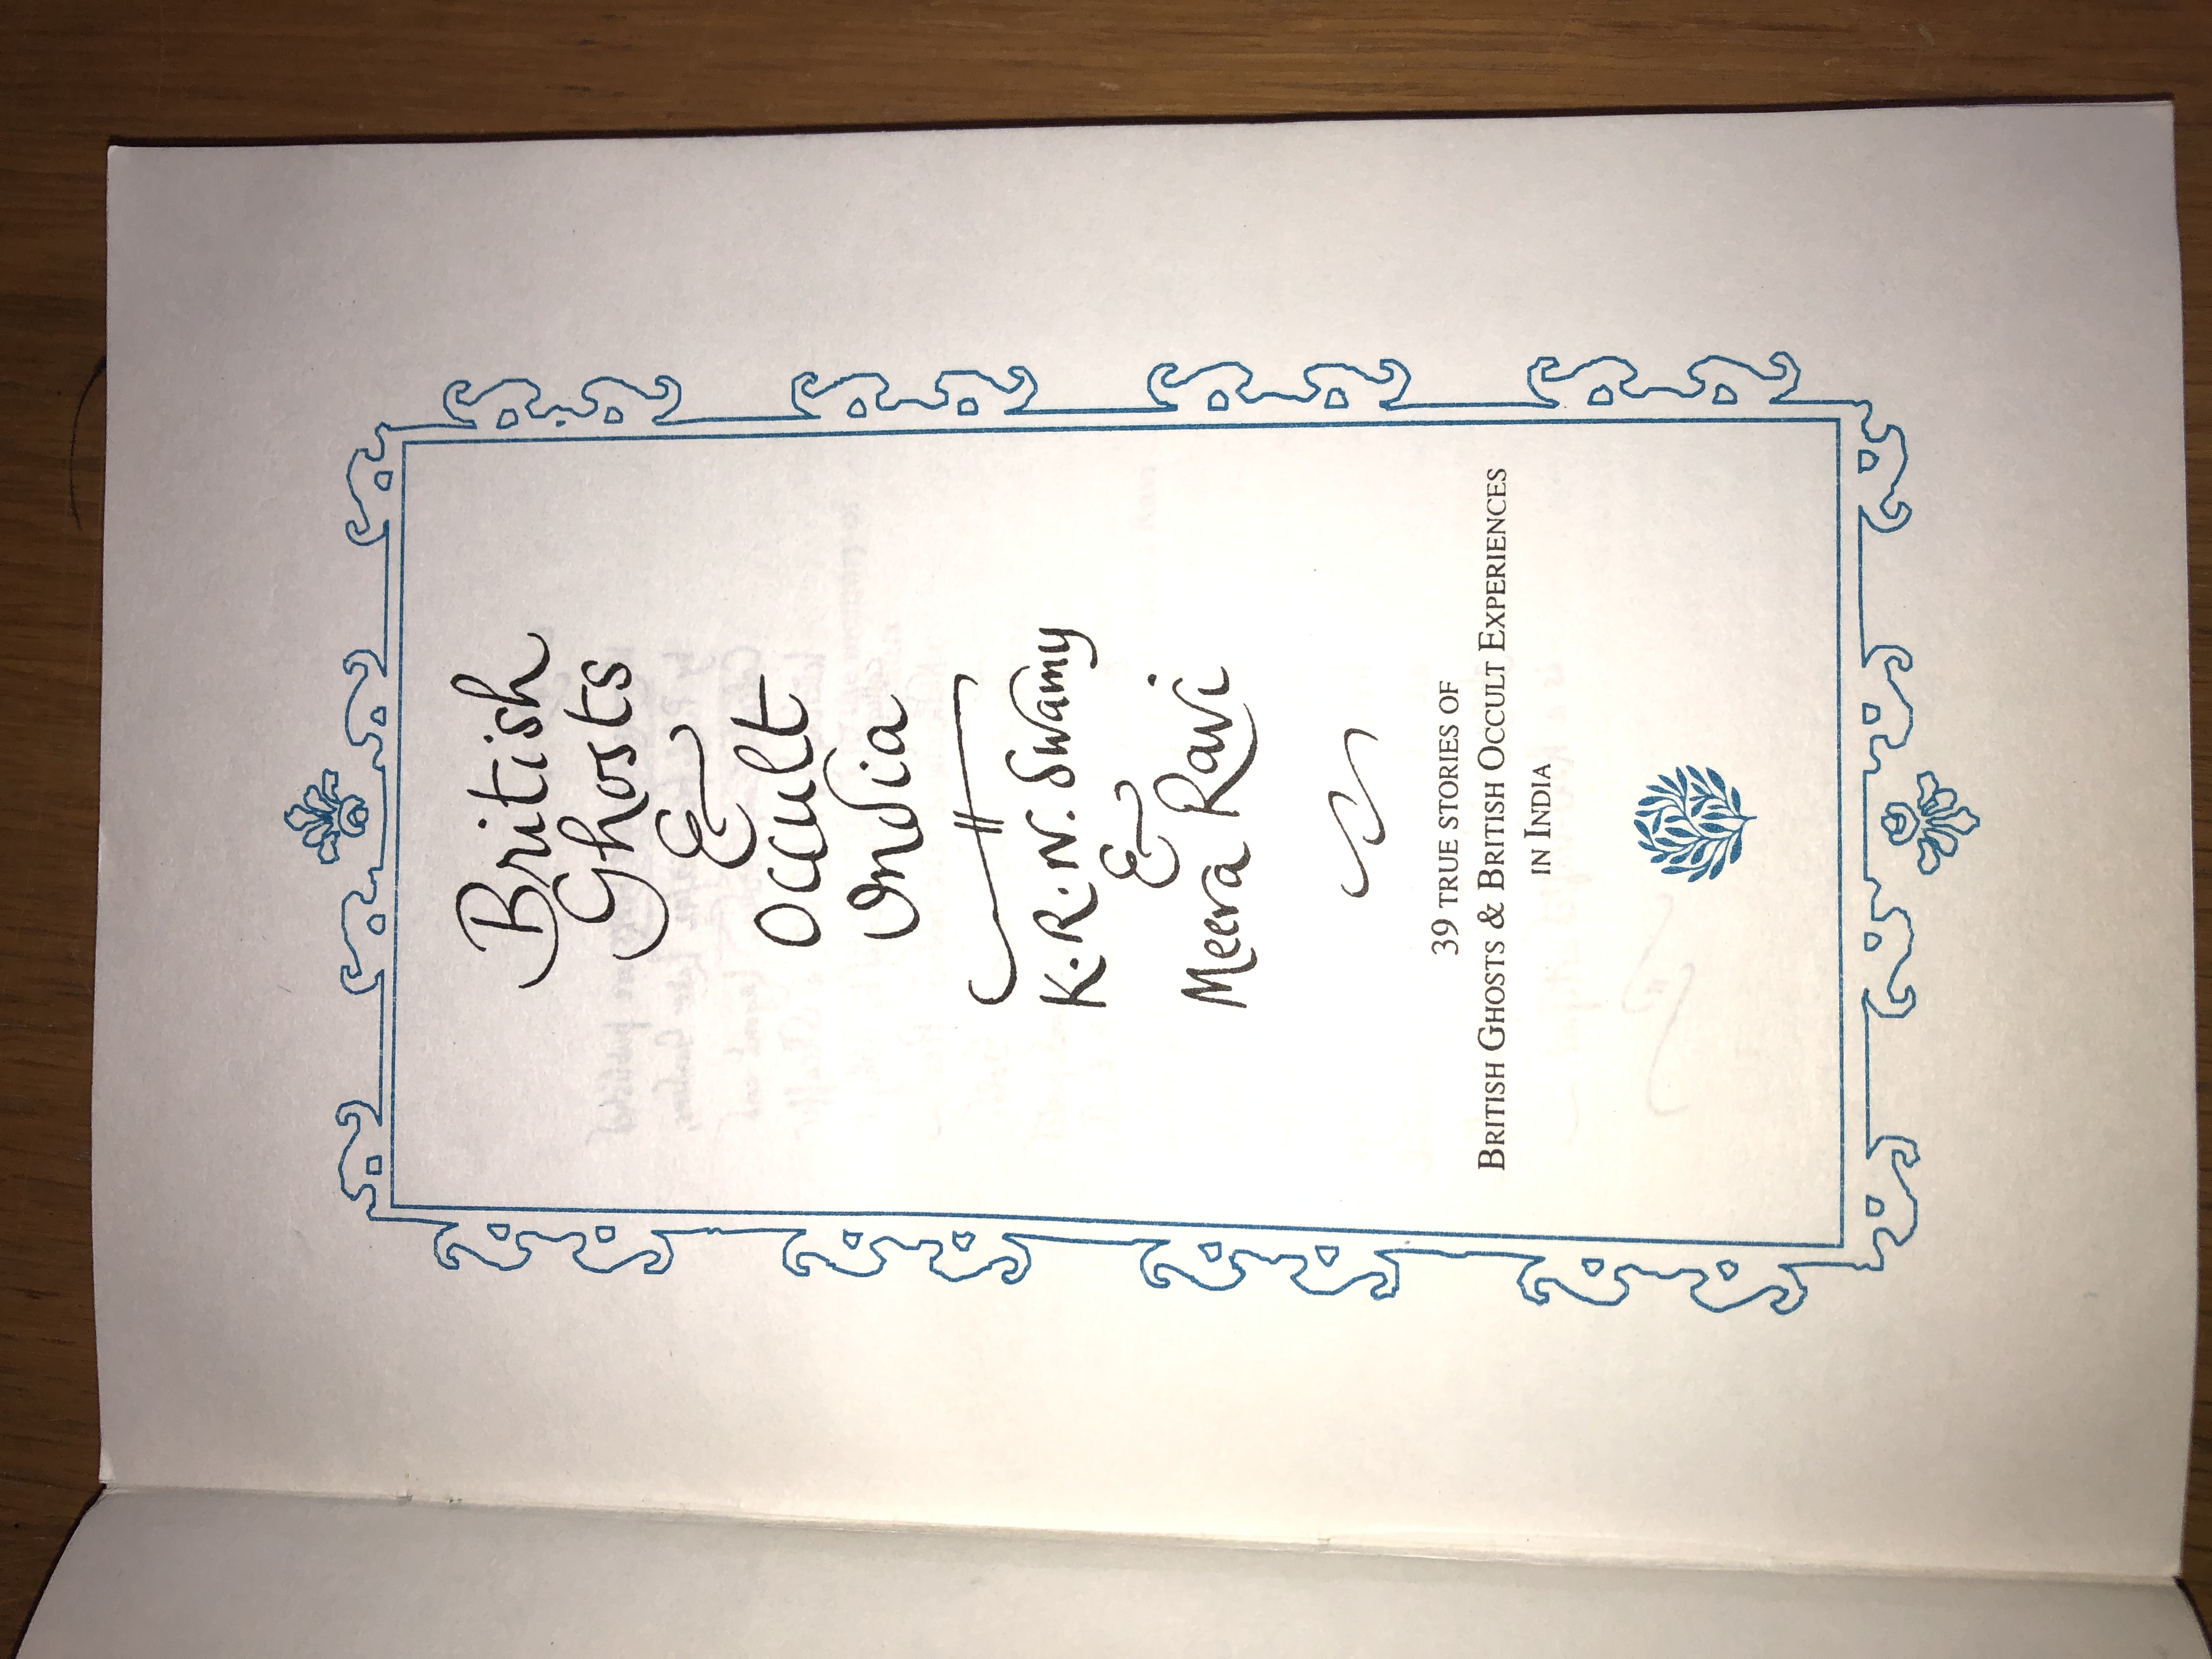 British
Ghosts
&
Occult
India
K.R.N. Swamy
&
Meera Ravi
39 TRUE STORIES OF
BRITISH GHOSTS & BRITISH OCCULT EXPERIENCES
IN INDIA